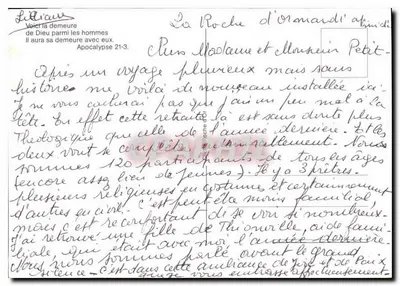 Liliane
Voici la demeure
de Dieu parmi les hommes
Il aura sa demeure avec eux.
Apocalypse 21-3.
La Roche d'
Madame et Monsieur Petit-
Après un voyage pluvieux mais sans
histoires me voilà de nouveau installée ici.
Je ne vous cacherai pas que j'ai un peu mal à la
tête. En effet cette retraite là est sans doute plus
Théologique que celle de l'année dernière. Et les
deux vont se compléter Nous
sommes 120 participants de tous les âges
(encore assez bien de jeunes). Il y a 3 prêtres.
plusieurs religieuses en costume et certainement
d'autres en civil. C'est peut être moins familial,
mais c'est réconfortant de se voir si nombreux.
J'ai retrouvé une fille de Thionville, aide fami-
liale, qui était avec moi l'année dernière
Nous nous sommes parlé avant le grand
silence - c'est dans cette ambiance de joie et de Paix
que je vous embrasse affectueusement